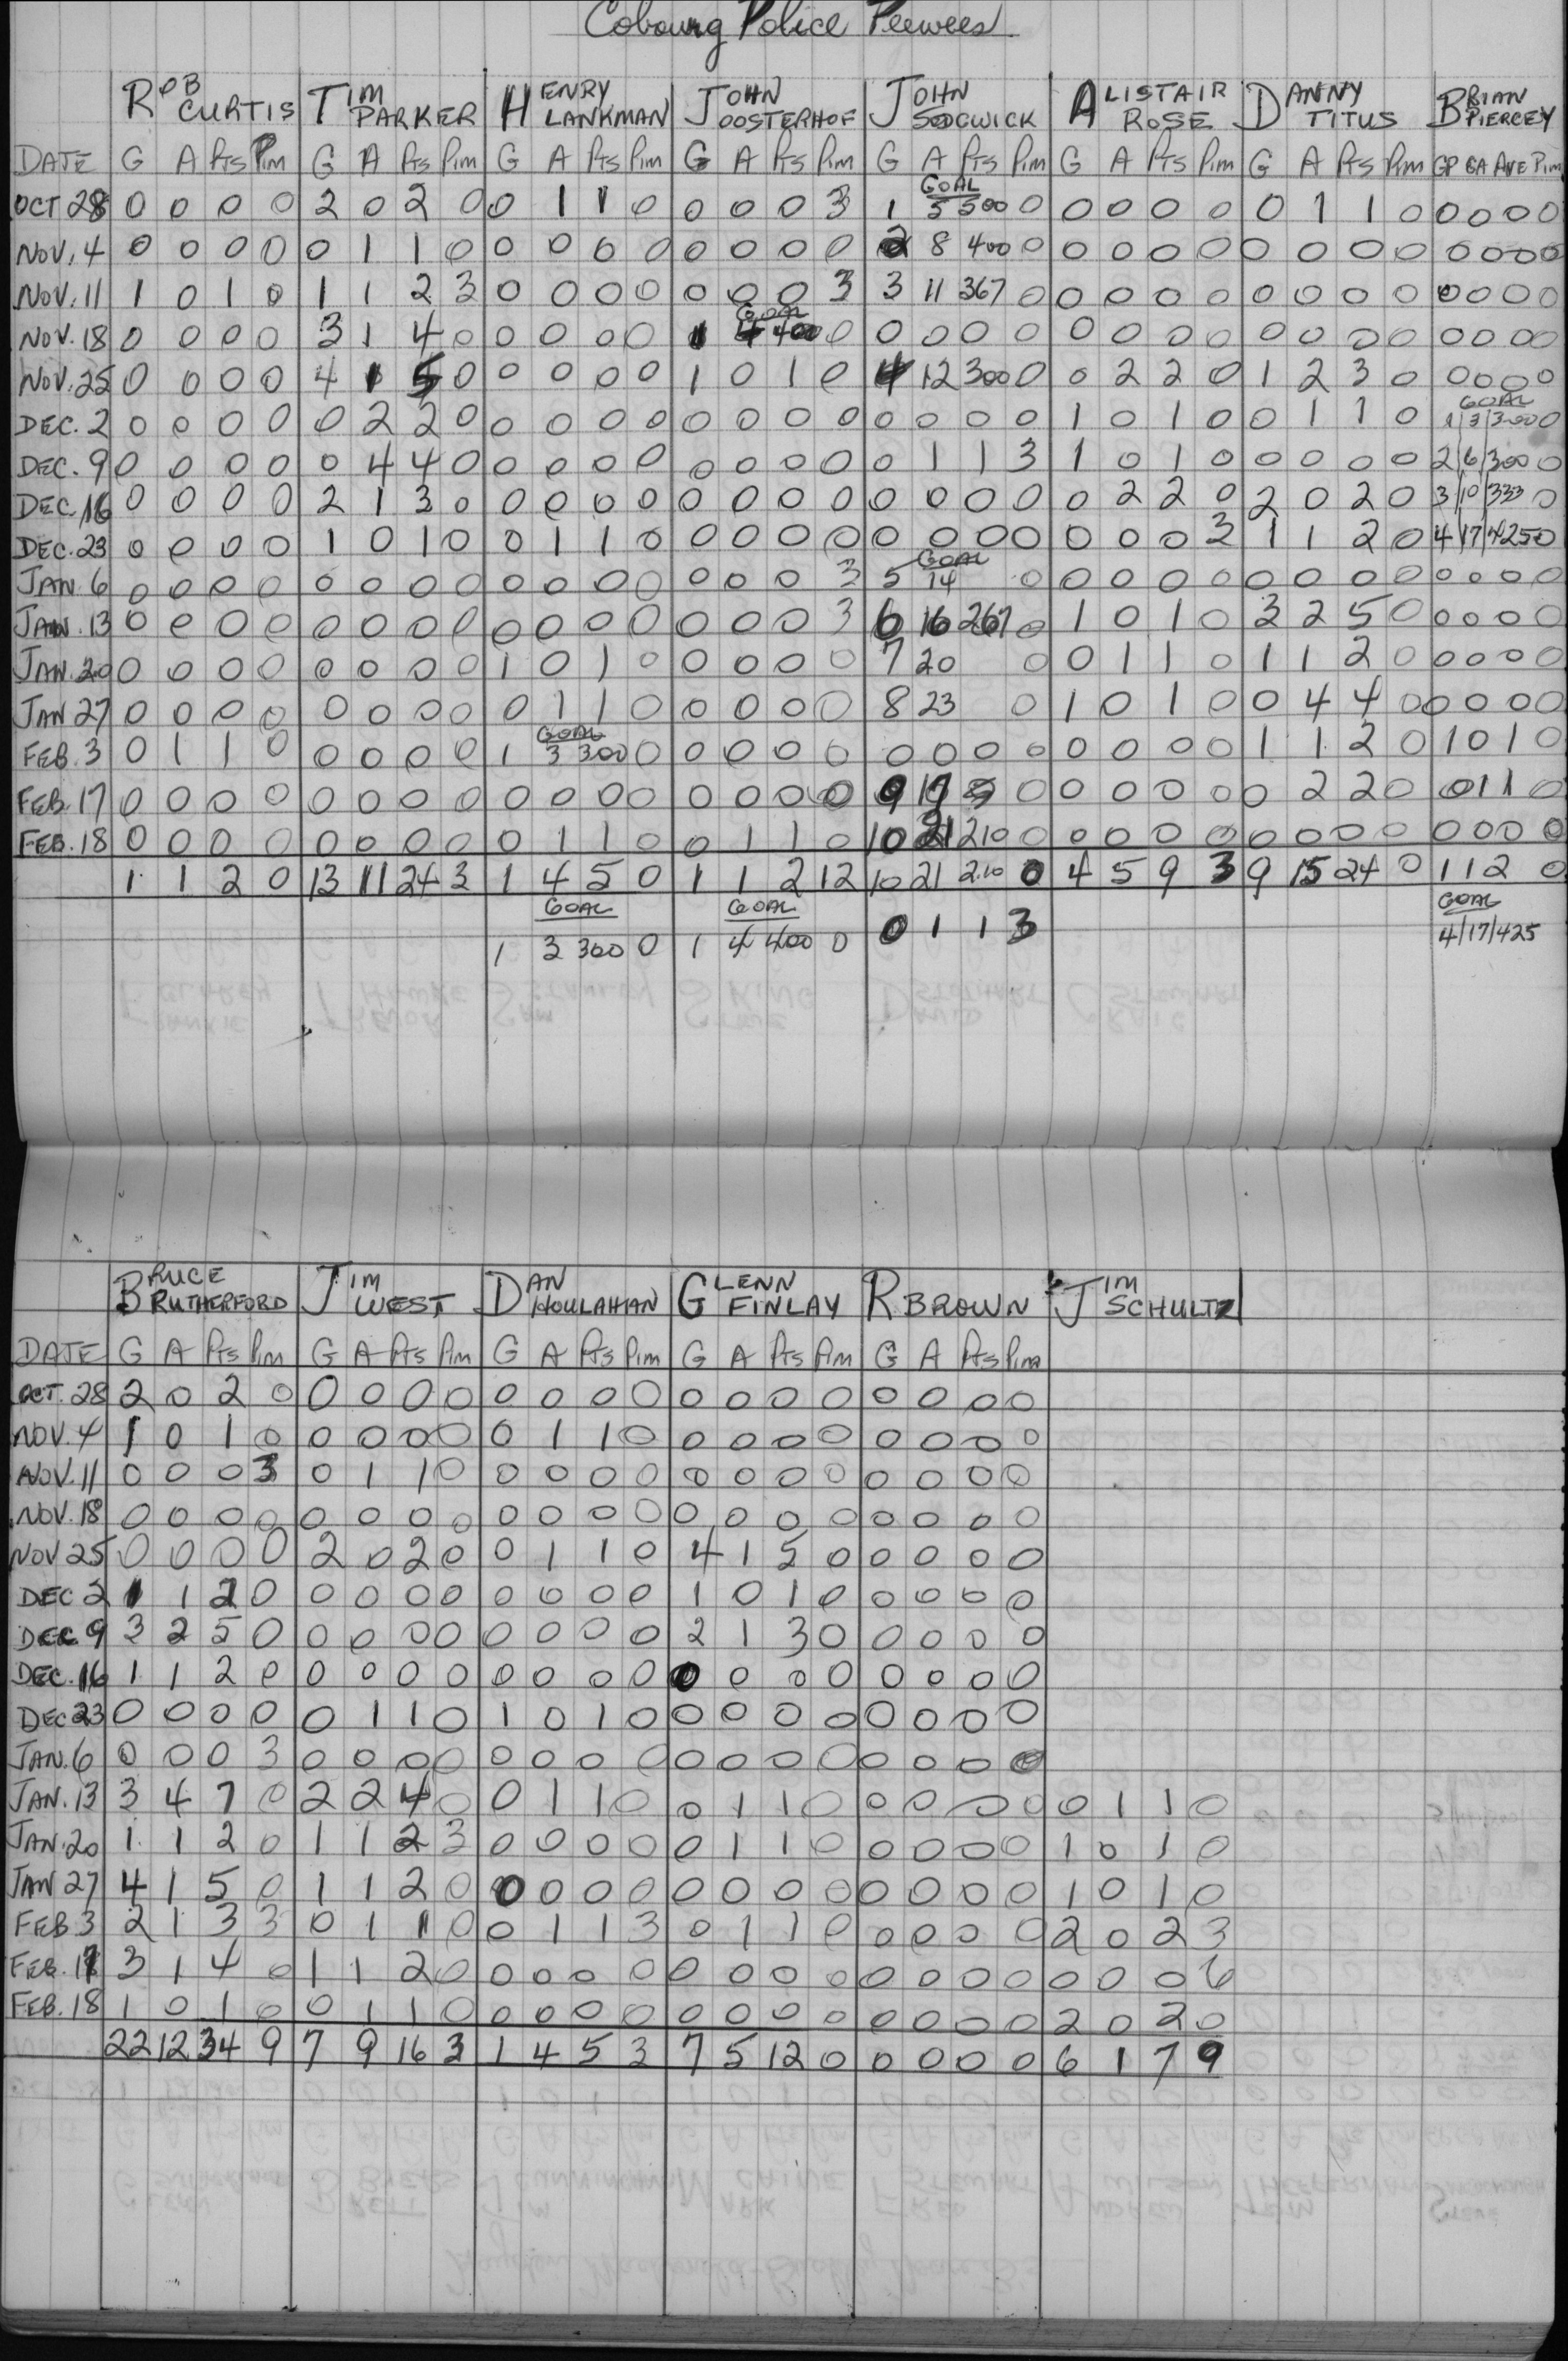 Cobourg Police Peewees
ROB CURTIS TIM PARKER HENRY LANKMAN JOHN OOSTERHOF JOHN SEDGWICK ALISTAIR ROSE DANNY TITUS BRIAN PIERCEY
DATE G A Pts Pim G A Pts Pim G A Pts Pim G A Pts Pim G A Pts Pim G A Pts Pim G A Pts Pim GP GA AVE Pim
GOAL
OCT 28 0 0 0 0 2 0 2 0 0 1 1 0 0 0 0 3 1 5 500 0 0 0 0 0 0 1 1 0 0 0 0 0
NOV. 4 0 0 0 0 0 1 1 0 0 0 0 0 0 0 0 0 2 8 400 0 0 0 0 0 0 0 0 0 0 0 0 0
NOV. 11 1 0 1 0 1 1 2 3 0 0 0 0 0 0 0 3 3 11 367 0 0 0 0 0 0 0 0 0 0 0 0 0
GOAL
NOV. 18 0 0 0 0 3 1 4 0 0 0 0 0 1 4 400 0 0 0 0 0 0 0 0 0 0 0 0 0 0 0 0 0
NOV. 25 0 0 0 0 4 1 5 0 0 0 0 0 1 0 1 0 4 12 300 0 0 2 2 0 1 2 3 0 0 0 0 0
GOAL
DEC. 2 0 0 0 0 0 2 2 0 0 0 0 0 0 0 0 0 0 0 0 0 1 0 1 0 0 1 1 0 1/3/300 0
DEC. 9 0 0 0 0 0 4 4 0 0 0 0 0 0 0 0 0 0 1 1 3 1 0 1 0 0 0 0 0 2/6/300 0
DEC. 16 0 0 0 0 2 1 3 0 0 0 0 0 0 0 0 0 0 0 0 0 0 2 2 0 2 0 2 0 3/10/333 0
DEC. 23 0 0 0 0 1 0 1 0 0 1 1 0 0 0 0 0 0 0 0 0 0 0 0 3 1 1 2 0 4/17/425 0
GOAL
JAN. 6 0 0 0 0 0 0 0 0 0 0 0 0 0 0 0 3 5 14 0 0 0 0 0 0 0 0 0 0 0 0 0
JAN. 13 0 0 0 0 0 0 0 0 0 0 0 0 0 0 0 3 6 16 267 0 1 0 1 0 3 2 5 0 0 0 0 0
JAN. 20 0 0 0 0 0 0 0 0 1 0 1 0 0 0 0 0 7 20 0 0 1 1 0 1 1 2 0 0 0 0 0
JAN 27 0 0 0 0 0 0 0 0 0 1 1 0 0 0 0 0 8 23 0 1 0 1 0 0 4 4 0 0 0 0 0
GOAL
FEB. 3 0 1 1 0 0 0 0 0 1 3 300 0 0 0 0 0 0 0 0 0 0 0 0 0 1 1 2 0 1 0 1 0
FEB. 17 0 0 0 0 0 0 0 0 0 0 0 0 0 0 0 0 9 19 0 0 0 0 0 0 2 2 0 0 1 1 0
FEB. 18 0 0 0 0 0 0 0 0 0 1 1 0 0 1 1 0 10 21 210 0 0 0 0 0 0 0 0 0 0 0 0 0
1 1 2 0 13 11 24 3 1 4 5 0 1 1 2 12 10 21 210 0 4 5 9 3 9 15 24 0 1 1 2 0
GOAL GOAL GOAL
1 3 300 0 1 4 400 0 0 1 1 3 4/17/425
BRUCE RUTHERFORD JIM WEST DAN HOULAHAN GLENN FINLAY R BROWN JIM SCHULTZ
DATE G A Pts Pim G A Pts Pim G A Pts Pim G A Pts Pim G A Pts Pim
OCT. 28 2 0 2 0 0 0 0 0 0 0 0 0 0 0 0 0 0 0 0 0
NOV. 4 1 0 1 0 0 0 0 0 0 1 1 0 0 0 0 0 0 0 0 0
NOV. 11 0 0 0 3 0 1 1 0 0 0 0 0 0 0 0 0 0 0 0 0
NOV. 18 0 0 0 0 0 0 0 0 0 0 0 0 0 0 0 0 0 0 0 0
NOV 25 0 0 0 0 2 0 2 0 0 1 1 0 4 1 5 0 0 0 0 0
DEC 2 1 1 2 0 0 0 0 0 0 0 0 0 1 0 1 0 0 0 0 0
DEC 9 3 2 5 0 0 0 0 0 0 0 0 0 2 1 3 0 0 0 0 0
DEC. 16 1 1 2 0 0 0 0 0 0 0 0 0 0 0 0 0 0 0 0 0
DEC 23 0 0 0 0 0 1 1 0 1 0 1 0 0 0 0 0 0 0 0 0
JAN. 6 0 0 0 3 0 0 0 0 0 0 0 0 0 0 0 0 0 0 0 0
JAN. 13 3 4 7 0 2 2 4 0 0 1 1 0 0 1 1 0 0 0 0 0 0 1 1 0
JAN. 20 1 1 2 0 1 1 2 3 0 0 0 0 0 1 1 0 0 0 0 0 1 0 1 0
JAN 27 4 1 5 0 1 1 2 0 0 0 0 0 0 0 0 0 0 0 0 0 1 0 1 0
FEB 3 2 1 3 3 0 1 1 0 0 1 1 3 0 1 1 0 0 0 0 0 2 0 2 3
FEB. 17 3 1 4 0 1 1 2 0 0 0 0 0 0 0 0 0 0 0 0 0 0 0 0 6
FEB. 18 1 0 1 0 0 1 1 0 0 0 0 0 0 0 0 0 0 0 0 0 2 0 2 0
22 12 34 9 7 9 16 3 1 4 5 3 7 5 12 0 0 0 0 0 6 1 7 9